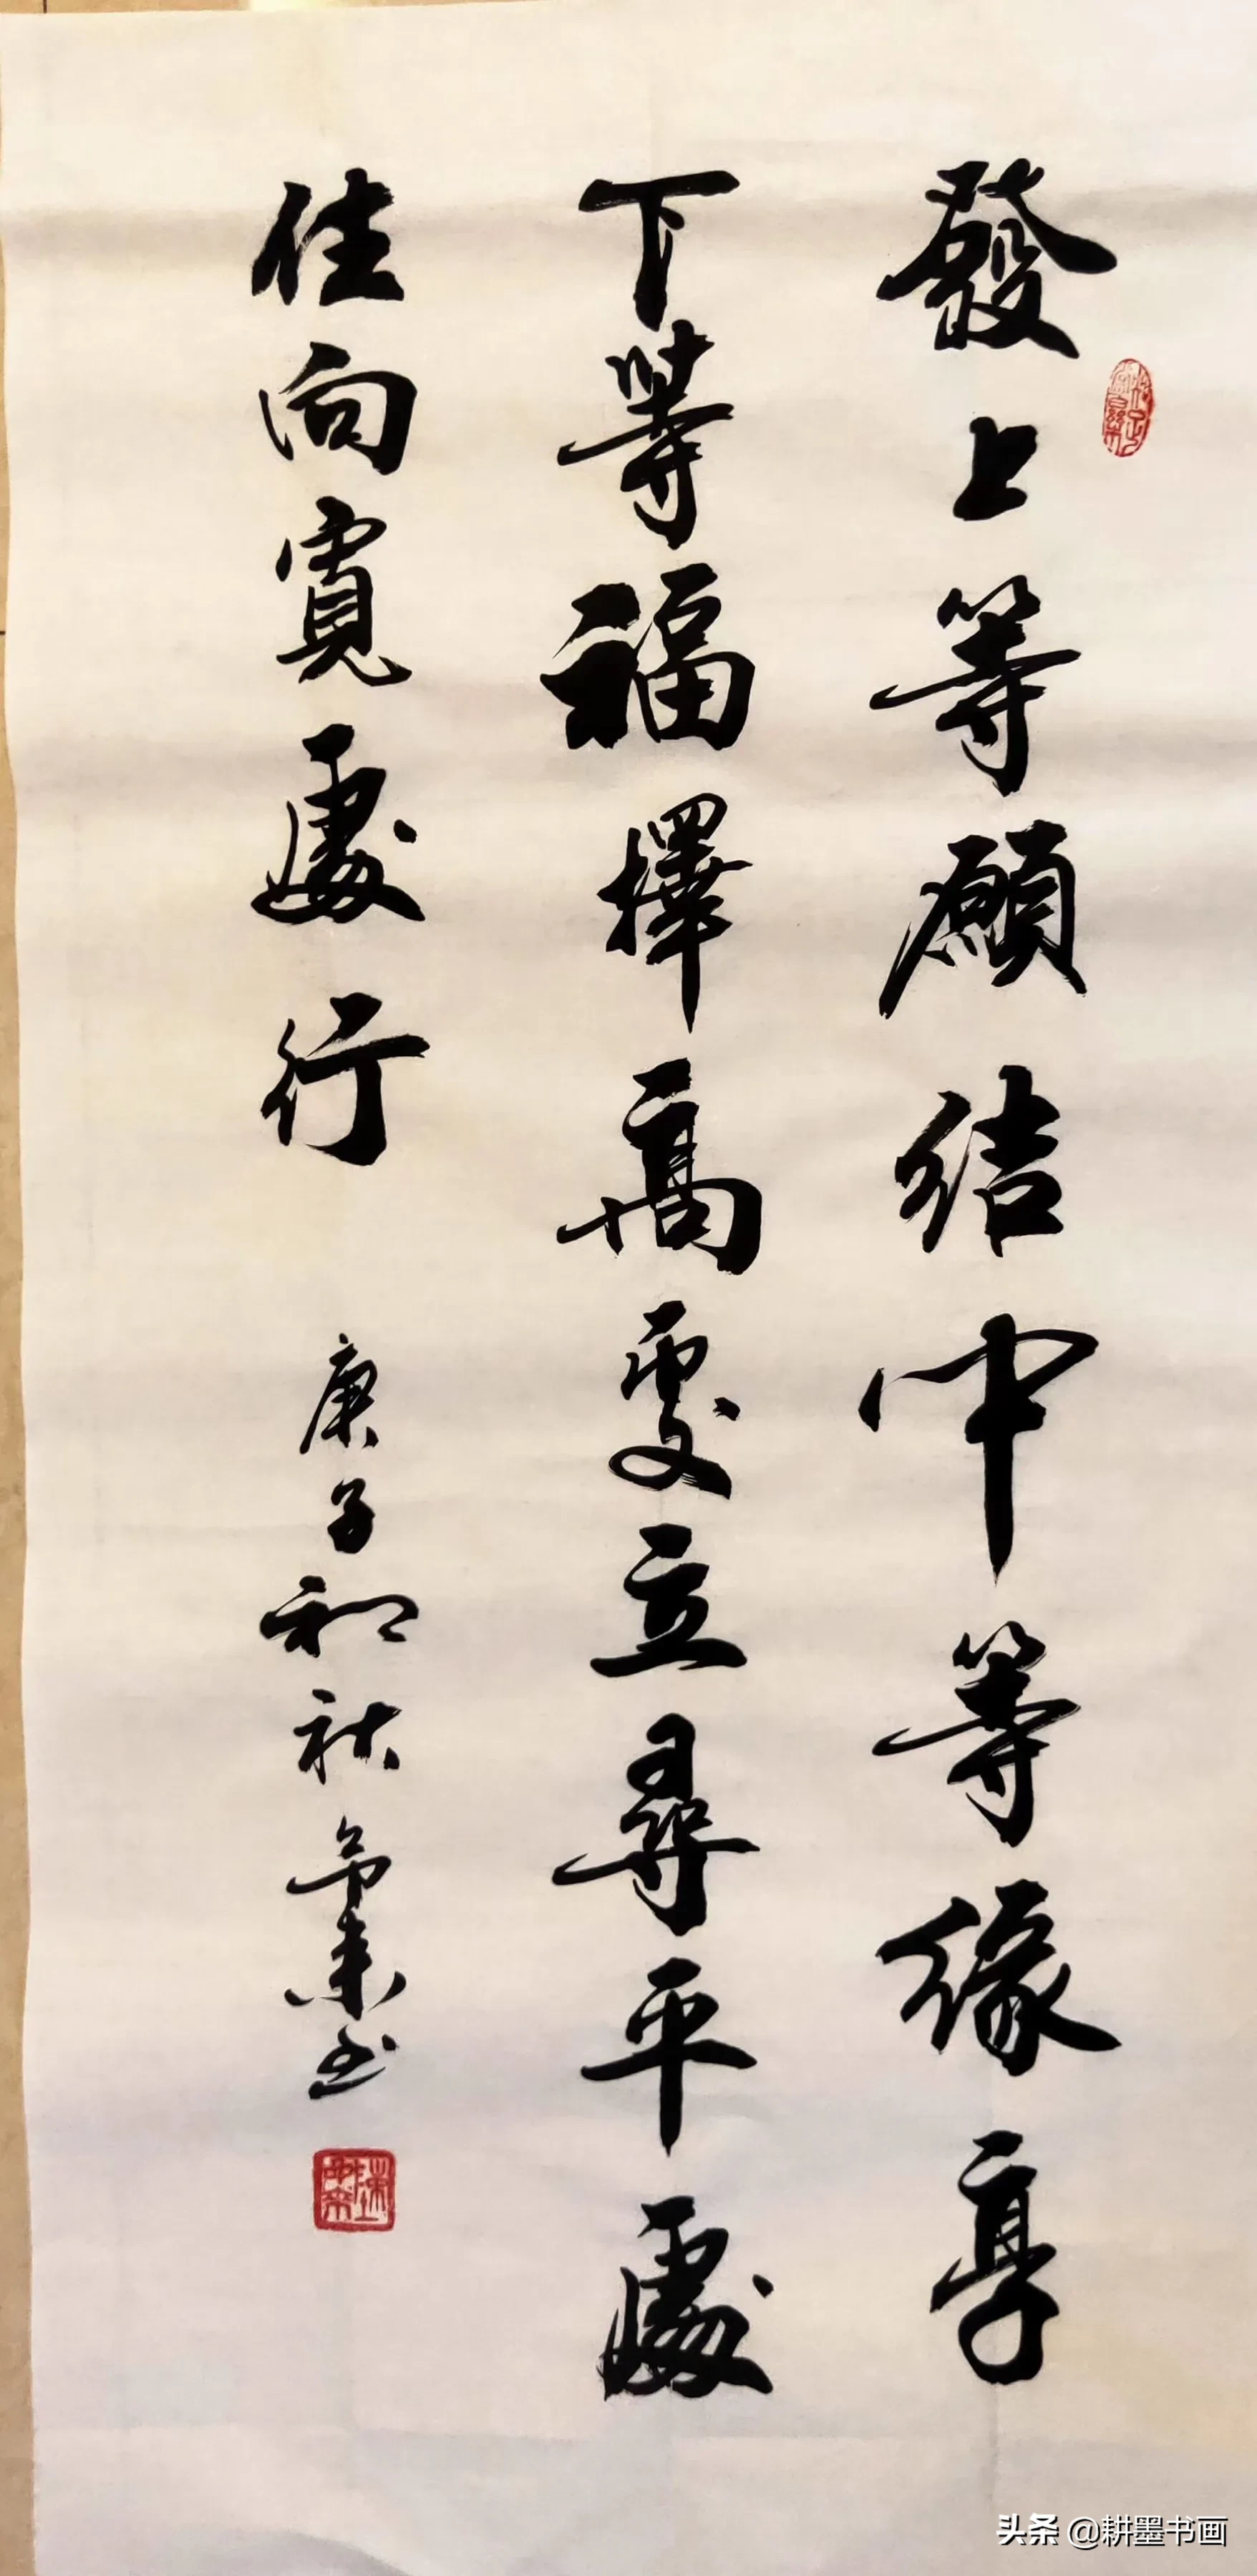 發上等願結中等緣享
下等福擇高處立尋平處
住向寬處行
庚子初秋
头条 @耕墨书画